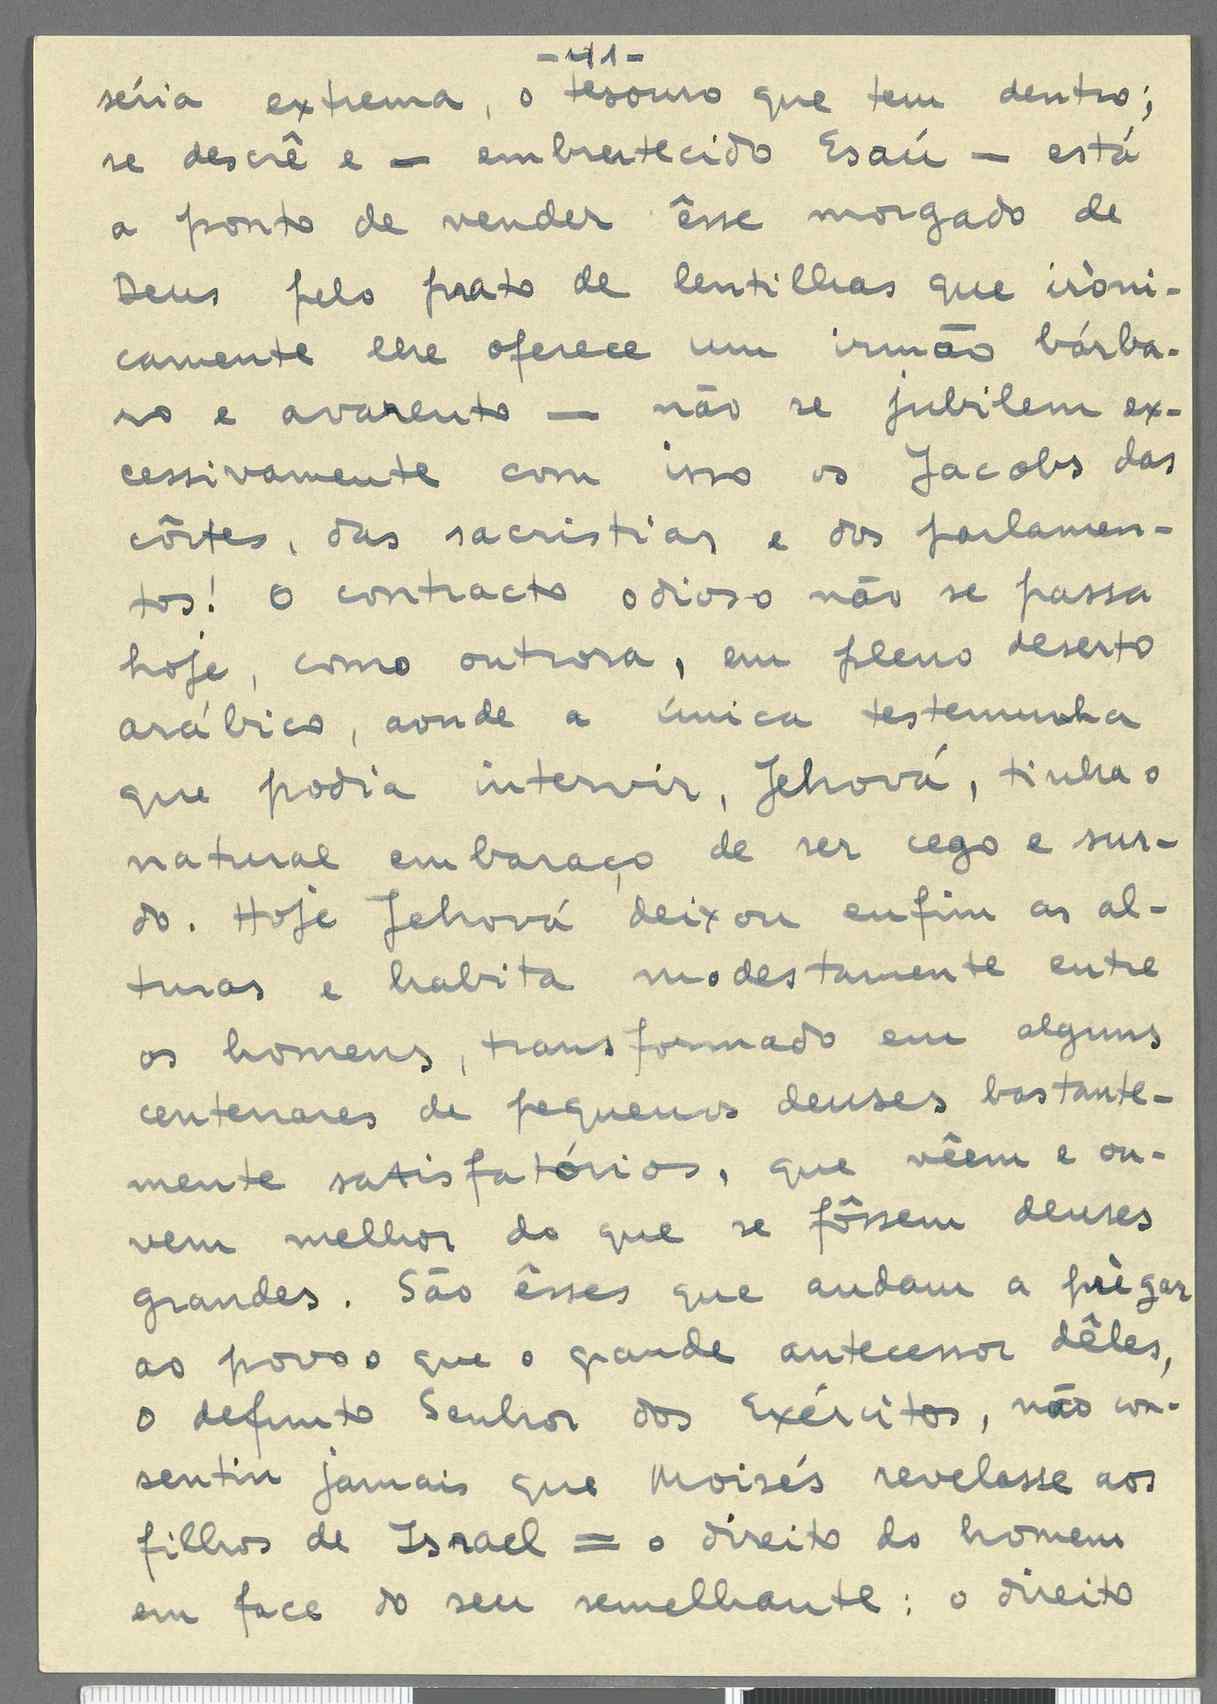 -41-
séria extrema, o tesouro que tem dentro;
se descrê e — embrutecido Esaú — está
a ponto de vender êsse morgado de
Deus pelo prato de lentilhas que iròni-
camente lhe oferece um irmão bárba-
ro e avarento — não se jubilem ex-
cessivamente com isso os Jacobs das
côrtes, das sacristias e dos parlamen-
tos! O contracto odioso não se passa
hoje, como outrora, em pleno deserto
arábico, aonde a única testemunha
que podia intervir, Jehová, tinha o
natural embaraço de ser cego e sur-
do. Hoje Jehová deixou enfim as al-
turas e habita modestamente entre
os homens, transformado em alguns
centenares de pequenos deuses bastante-
mente satisfatórios, que vêem e ou-
vem melhor do que se fôssem deuses
grandes. São êsses que andam a prègar
ao povo o que o grande antecessor dêles,
o defunto Senhor dos Exércitos, não con-
sentiu jamais que Moisés revelasse aos
filhos de Israel = o direito do homem
em face do seu semelhante: o direito